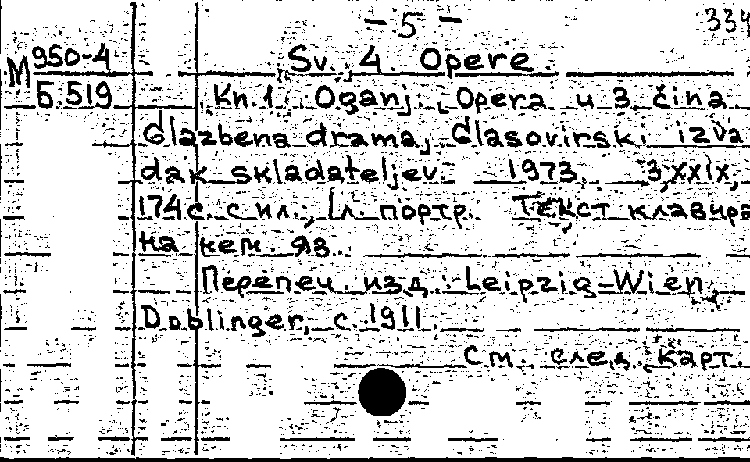 – 5 –
334
М 950-4
Б.519
Sv. 4. Opere.
Kn. 1. Oganj. Opera u 3 čina
Glazbena drama, Glasovirski izva
dak skladateljev. 1973. 3,XXIX,
174с. с ил., 1л. портр. Текст клавира
на нем. яз.
Перепеч. изд.: Leipzig–Wien,
Doblinger, c. 1911.
См. след. карт.